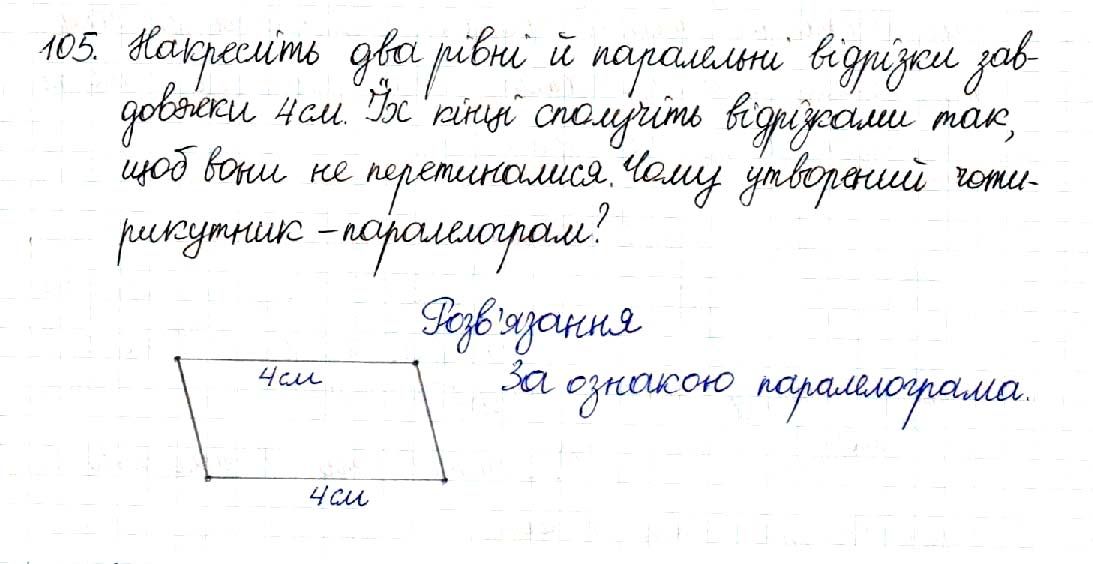 105. Накресліть два рівні й паралельні відрізки зав-
довжки 4 см. Їх кінці сполучіть відрізками так,
щоб вони не перетиналися. Чому утворений чоти-
рикутник – паралелограм?
Розв'язання
4 см
За ознакою паралелограма.
4 см